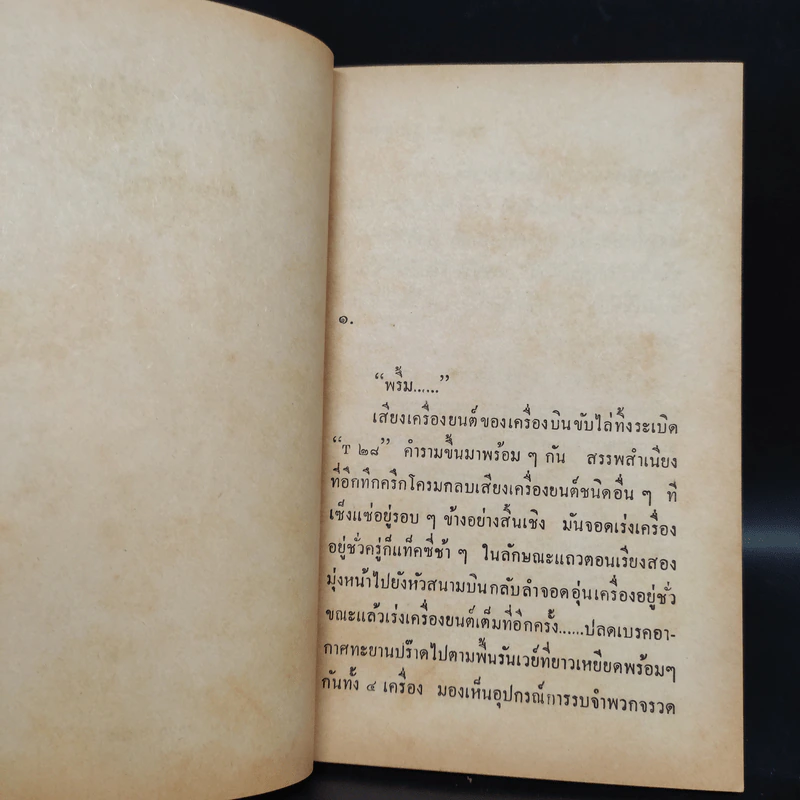 ๑.
“พรึ้ม......”
เสียงเครื่องยนต์ของเครื่องบินขับไล่ทิ้งระเบิด
“T ๒๘” คำรามขึ้นมาพร้อม ๆ กัน สรรพสำเนียง
ที่อึกทึกครึกโครมกลบเสียงเครื่องยนต์ชนิดอื่น ๆ ที่
เซ็งแซ่อยู่รอบ ๆ ข้างอย่างสิ้นเชิง มันจอดเร่งเครื่อง
อยู่ชั่วครู่ก็แท็คซี่ช้า ๆ ในลักษณะแถวตอนเรียงสอง
มุ่งหน้าไปยังหัวสนามบินกลับลำจอดอุ่นเครื่องอยู่ชั่ว
ขณะแล้วเร่งเครื่องยนต์เต็มที่อีกครั้ง......ปลดเบรคอา-
กาศทะยานปร๊าดไปตามพื้นรันเวย์ที่ยาวเหยียดพร้อมๆ
กันทั้ง ๔ เครื่อง มองเห็นอุปกรณ์การรบจำพวกจรวด